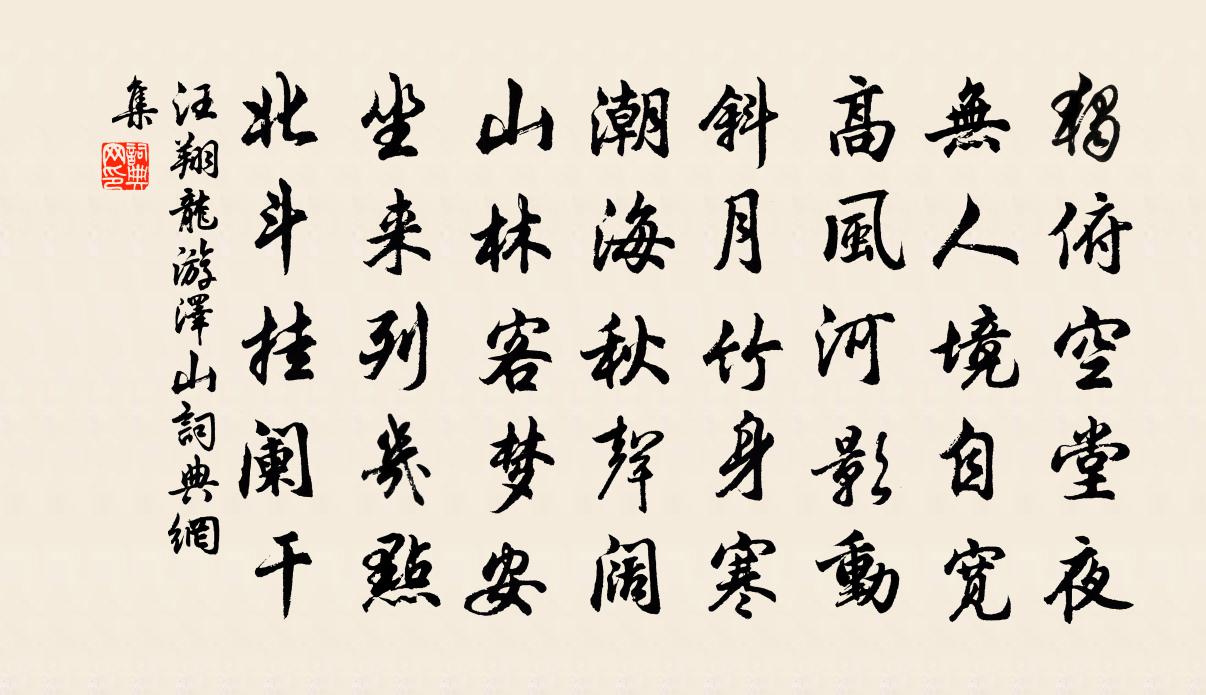 獨俯空堂夜
無人境自寬
高風河影動
斜月竹身寒
潮海秋聲闊
山林客梦安
坐来列幾點
北斗挂阑干
汪翔龍游澤山詞典網
集
詞典网印